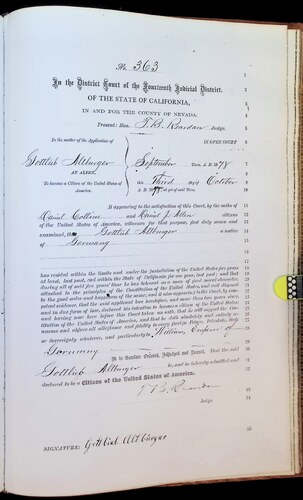 No. 363
In the District Court of the Fourteenth Judicial District,
OF THE STATE OF CALIFORNIA,
IN AND FOR THE COUNTY OF NEVADA.
Present: Hon. T. B. Reardan Judge.
In the matter of the Application of
IN OPEN COURT
Gottlieb Altburger
September Term, A. D. 1878
AN ALIEN,
this Third day October
To become a Citizen of the United States of
America.
A. D. 1878, of said Term
It appearing to the satisfaction of this Court, by the oaths
of Daniel Collins and Daniel J. Allen citizens
of the United States of America, witnesses for that purpose, first duly sworn and
examined, that Gottlieb Altburger a native
of Germany
has resided within the limits and under the jurisdiction of the United States five years
at least, last past, and within the State of California for one year, last past; and that
during all of said five years' time he has behaved as a man of good moral character,
attached to the principles of the Constitution of the United States, and well disposed
to the good order and happiness of the same; and it also appearing to the Court, by competent evidence, that the said applicant has heretofore, and more than two years since,
and in due form of law, declared his intention to become a citizen of the United States
and having now here before this Court taken an oath, that he will support the Constitution of the United States of America, and that he doth absolutely and entirely renounce and abjure all allegiance and fidelity to every foreign Prince, Potentate, State
or Sovereignty whatever, and particularly to William Emperor of
Germany
It is therefore Ordered, Adjudged and Decreed, That the said
Gottlieb Altburger be, and he is hereby admitted and
declared to be a Citizen of the United States of America.
T. B. Reardan
Judge.
SIGNATURE: Gottlieb Altburger